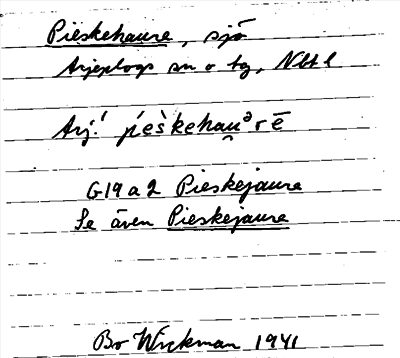 Pieskehaure, sjö
Arjeplogs sn o tg, Nbt l
Arj.! pi̯eškehau̯ᵊrē
G19 a 2 Pieskejaure
Se även Pieskejaure
Bo Wickman 1941